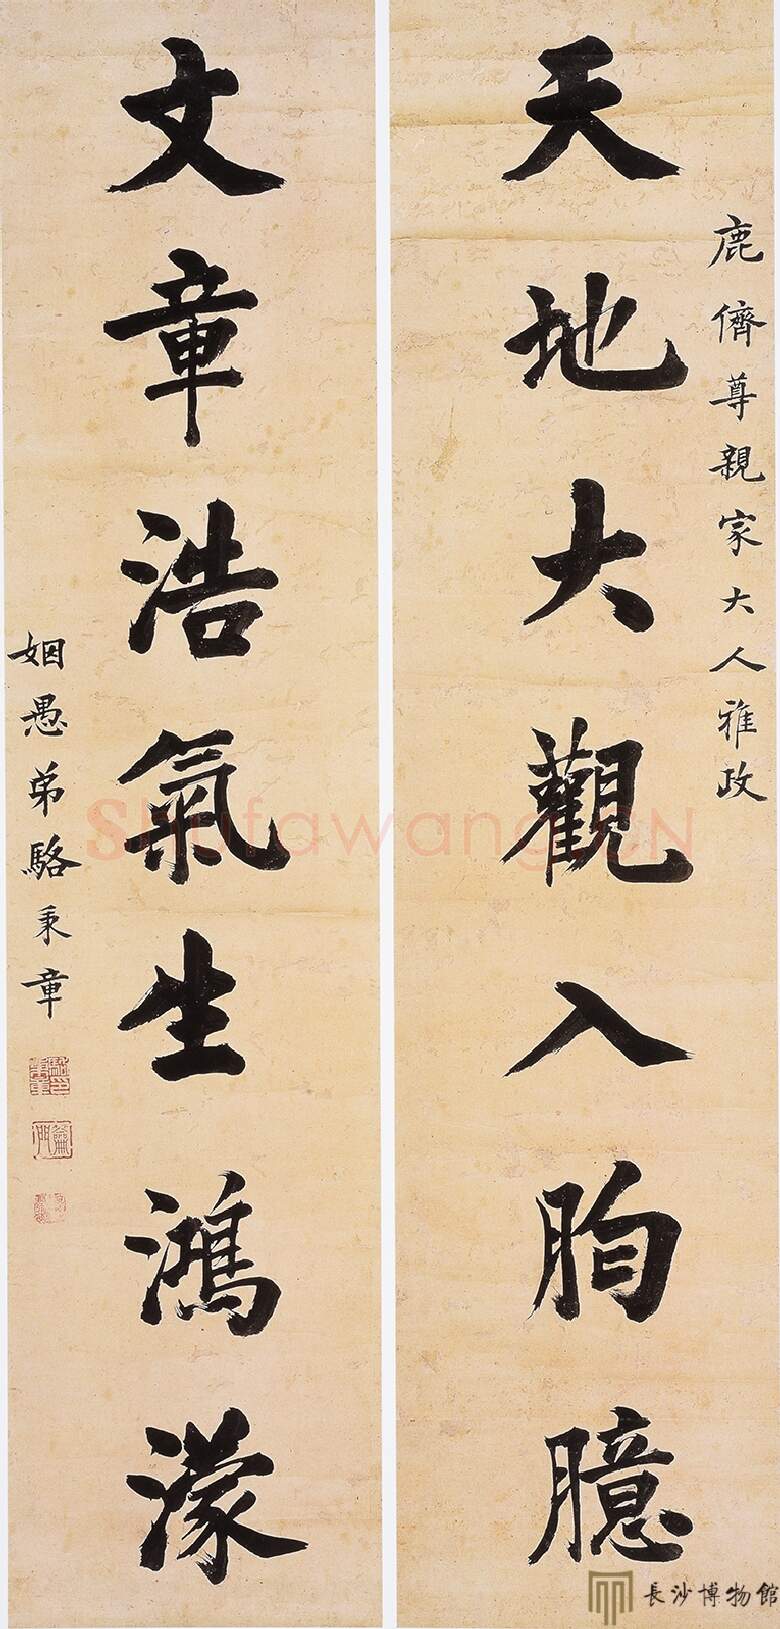 鹿儕尊親家大人雅政
天地大觀入胸臆
文章浩氣生鴻濛
姻愚弟駱秉章
shufawang.CN
長沙博物館